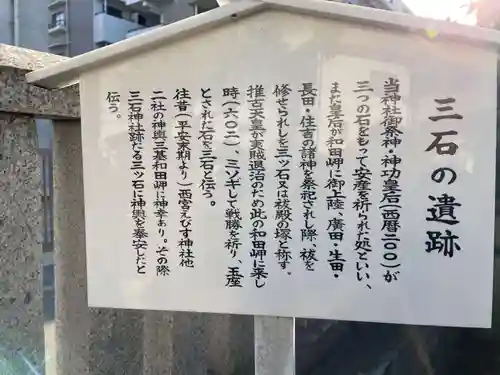 三石の遺跡
当神社御祭神・神功皇后(西暦二〇〇)が
三つの石をもって安産を祈られた処といい、
また皇后が和田岬に御上陸、廣田・生田・
長田・住吉の諸神を祭祀されし際、祓を
修せられしを三ッ石又は祓殿の塚と称す。
推古天皇が夷賊退治のため此の和田岬に来し
時(六〇二)、ミソギして戦勝を祈り、玉座
とされた石を三石と伝う。
往昔(平安末期より)西宮えびす神社他
二社の神輿三基和田岬に神幸あり。その際
三石神社跡だる三ツ石に神輿を奉安したと
伝う。